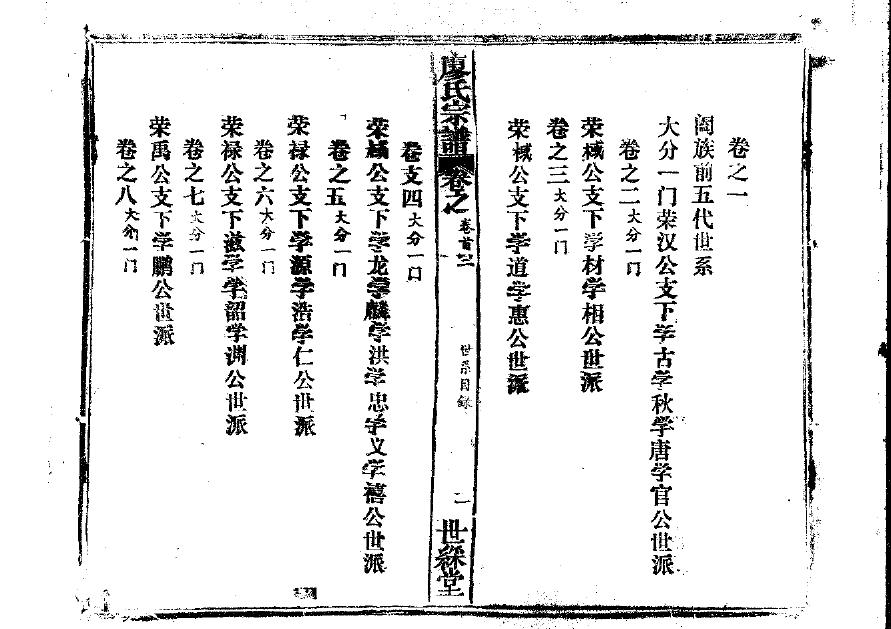 卷之一
阖族前五代世系
大分一门荣汉公支下学古学秋学唐学官公世派
卷之二大分一门
荣棫公支下学材学相公世派
卷之三大分一门
荣棫公支下学道学惠公世派
廖氏宗譜 卷之 卷首三 世系目録 二 世綵堂
卷支四大分一门
荣 公支下学龙学麟学洪学忠学义学禧公世派
卷之五大分一门
荣禄公支下学源学浩学仁公世派
卷之六大分一门
荣禄公支下 学学韶学渊公世派
卷之七大分一门
荣禹公支下学鹏公世派
卷之八大分一门